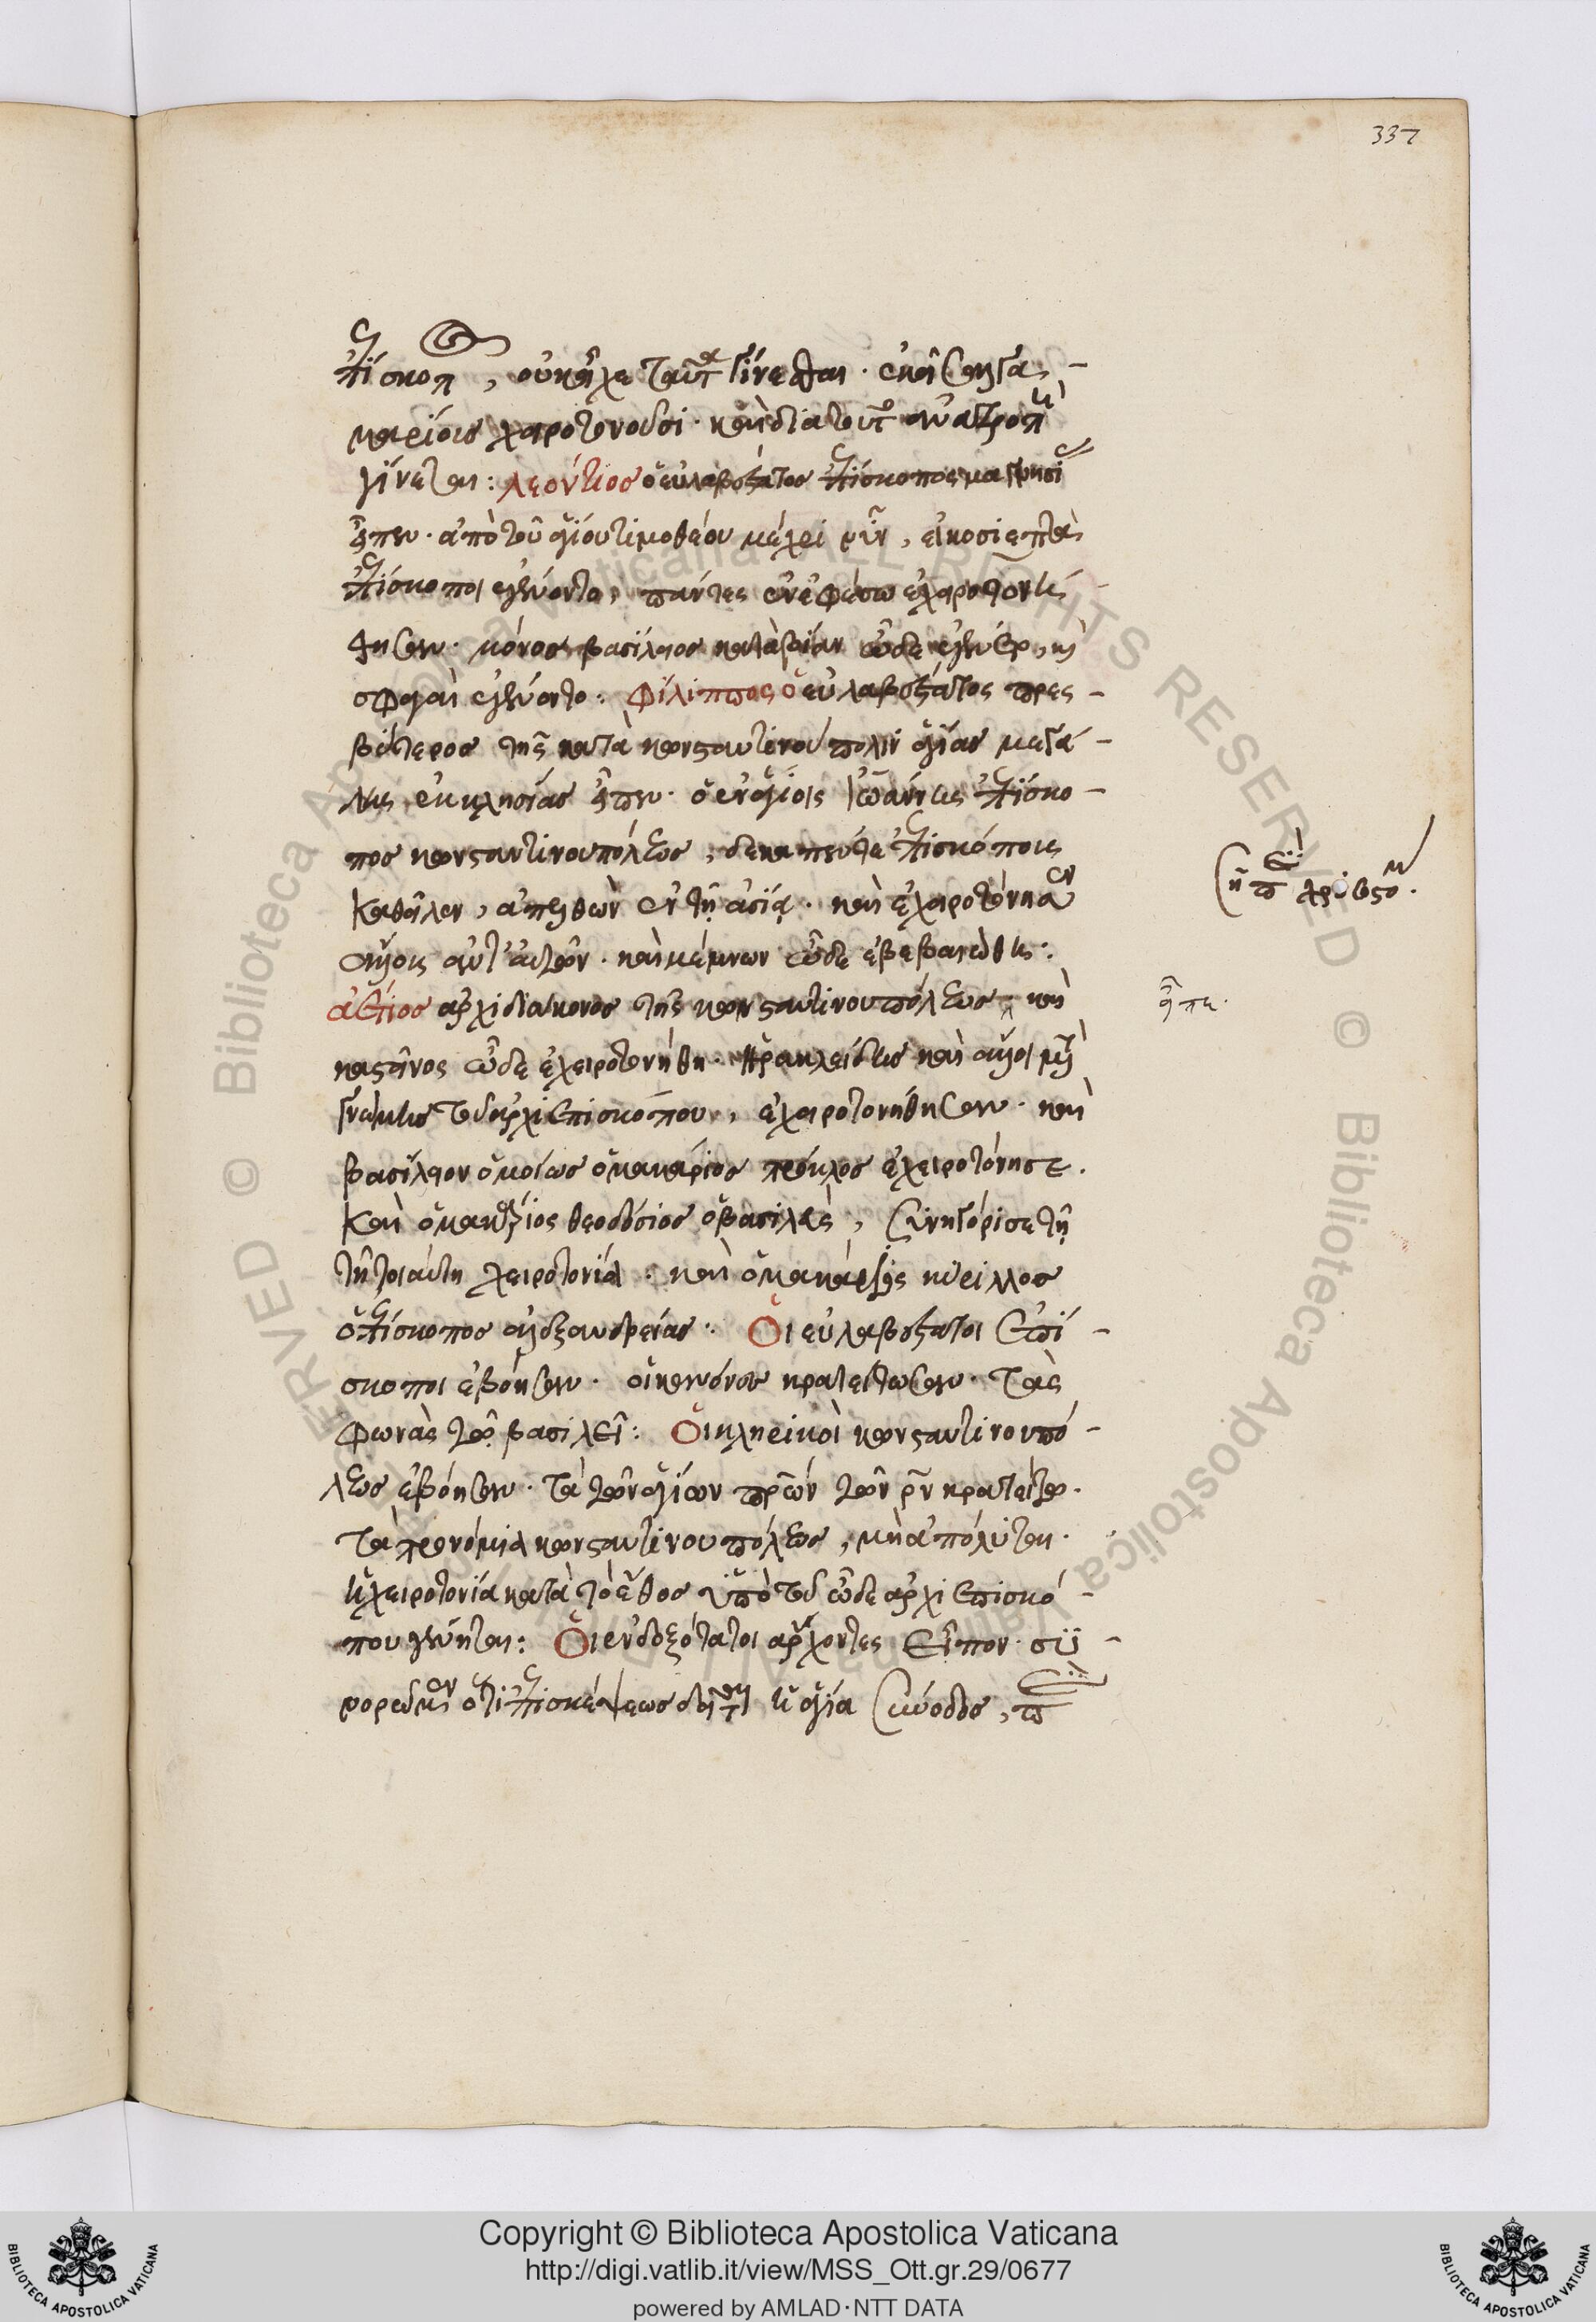 337
ἐπίσκοπ, οὐκ εἶχε ταῦτα γίνεσθαι. ἐκεῖ σαλγα-
μαρίους χειροτονοῦσι. καὶ διατοῦτο ἀνατροπὴ
γίνεται: λεόντιος ὁ εὐλαβέστατος ἐπίσκοπος μαγνησίας
εἶπεν. ἀπὸ τοῦ ἁγίου τιμοθέου μέχρι νῦν, εἰκοσιεπτὰ
ἐπίσκοποι ἐγένοντο, πάντες ἐν ἐφέσω ἐχειροτονή-
θησαν. μόνος βασίλειος κατὰ βίαν ὧδε ἐγένετο, καὶ
σφαγαὶ ἐγένοντο: φίλιππος ὁ εὐλαβέστατος πρες-
βύτερος τῆς κατὰ κωνσταντίνου πόλιν ἁγίας μεγά-
λης ἐκκλησίας εἶπεν. ὁ ἐν ἁγίοις ἰωάννης ἐπίσκο-
πος κωνσταντινουπόλεως, δεκαπέντε ἐπισκόπους
καθεῖλεν, ἀπελθὼν ἐν τῇ ἀσίᾳ. καὶ ἐχειροτόνησεν
ἄλλους ἀντ' αὐτῶν. καὶ μέμνων ὧδε ἐβεβαιώθη:
ἀέτιος ἀρχιδιάκονος τῆς κωνσταντινουπόλεως. καὶ
καστῖνος ὧδε ἐχειροτονήθη. ἡρακλείδης καὶ ἄλλοι μετὰ
γνώμης τοῦ ἀρχιεπισκόπου, ἐχειροτονήθησαν. καὶ
βασίλειον ὁμοίως ὁ μακάριος πρόκλος ἐχειροτόνησε.
καὶ ὁ μακάριος θεοδόσιος ὁ βασιλεὺς, συνηγόρισε τῇ
τῇ τοιαύτη χειροτονία. καὶ ὁ μακάριος κύριλλος
ὁ ἐπίσκοπος ἀλεξανδρείας: Οἱ εὐλαβέστατοι ἐπί-
σκοποι ἐβόησαν. οἱ κανόνες κρατείτωσαν. τὰς
φωνὰς τῷ βασιλεῖ: Οἱ κληρικοὶ κωνσταντινουπό-
λεως ἐβόησαν. τὰ τῶν ἁγίων πρῶν τῶν ρν κρατείτω.
τὰ προνόμια κωνσταντινουπόλεως, μὴ ἀπόλυται.
ἡ χειροτονία κατὰ τὸ ἔθος ὑπὸ τοῦ ὧδε ἀρχιεπισκό-
που γένηται: Οἱ ἐνδοξότατοι ἄρχοντες εἶπον. συ-
νορῶμεν ὅτι ἐπισκέψεως δεῖται ἡ ἁγία σύνοδος, π
εἶπε.
Copyright © Biblioteca Apostolica Vaticana
http://digi.vatlib.it/view/MSS_Ott.gr.29/0677
powered by AMLAD·NTT DATA
BIBLIOTECA APOSTOLICA VATICANA
BIBLIOTECA APOSTOLICA VATICANA